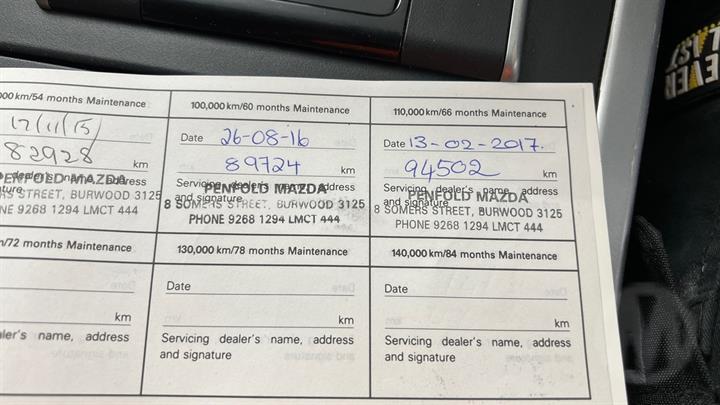 000 km/54 months Maintenance
17/11/15
82928 km
dealer's name, address
PENFOLD MAZDA
RS STREET, BURWOOD 3125
NE 9268 1294 LMCT 444
100,000 km/60 months Maintenance
Date 26-08-16
89724 km
Servicing dealer's name, address
and signature
PENFOLD MAZDA
8 SOMERS STREET, BURWOOD 3125
PHONE 9268 1294 LMCT 444
110,000 km/66 months Maintenance
Date 13-02-2017.
94502 km
Servicing dealer's name, address
and signature
PENFOLD MAZDA
8 SOMERS STREET, BURWOOD 3125
PHONE 9268 1294 LMCT 444
m/72 months Maintenance
km
aler's name, address
130,000 km/78 months Maintenance
Date
km
Servicing dealer's name, address
and signature
140,000 km/84 months Maintenance
Date
km
Servicing dealer's name, address
and signature